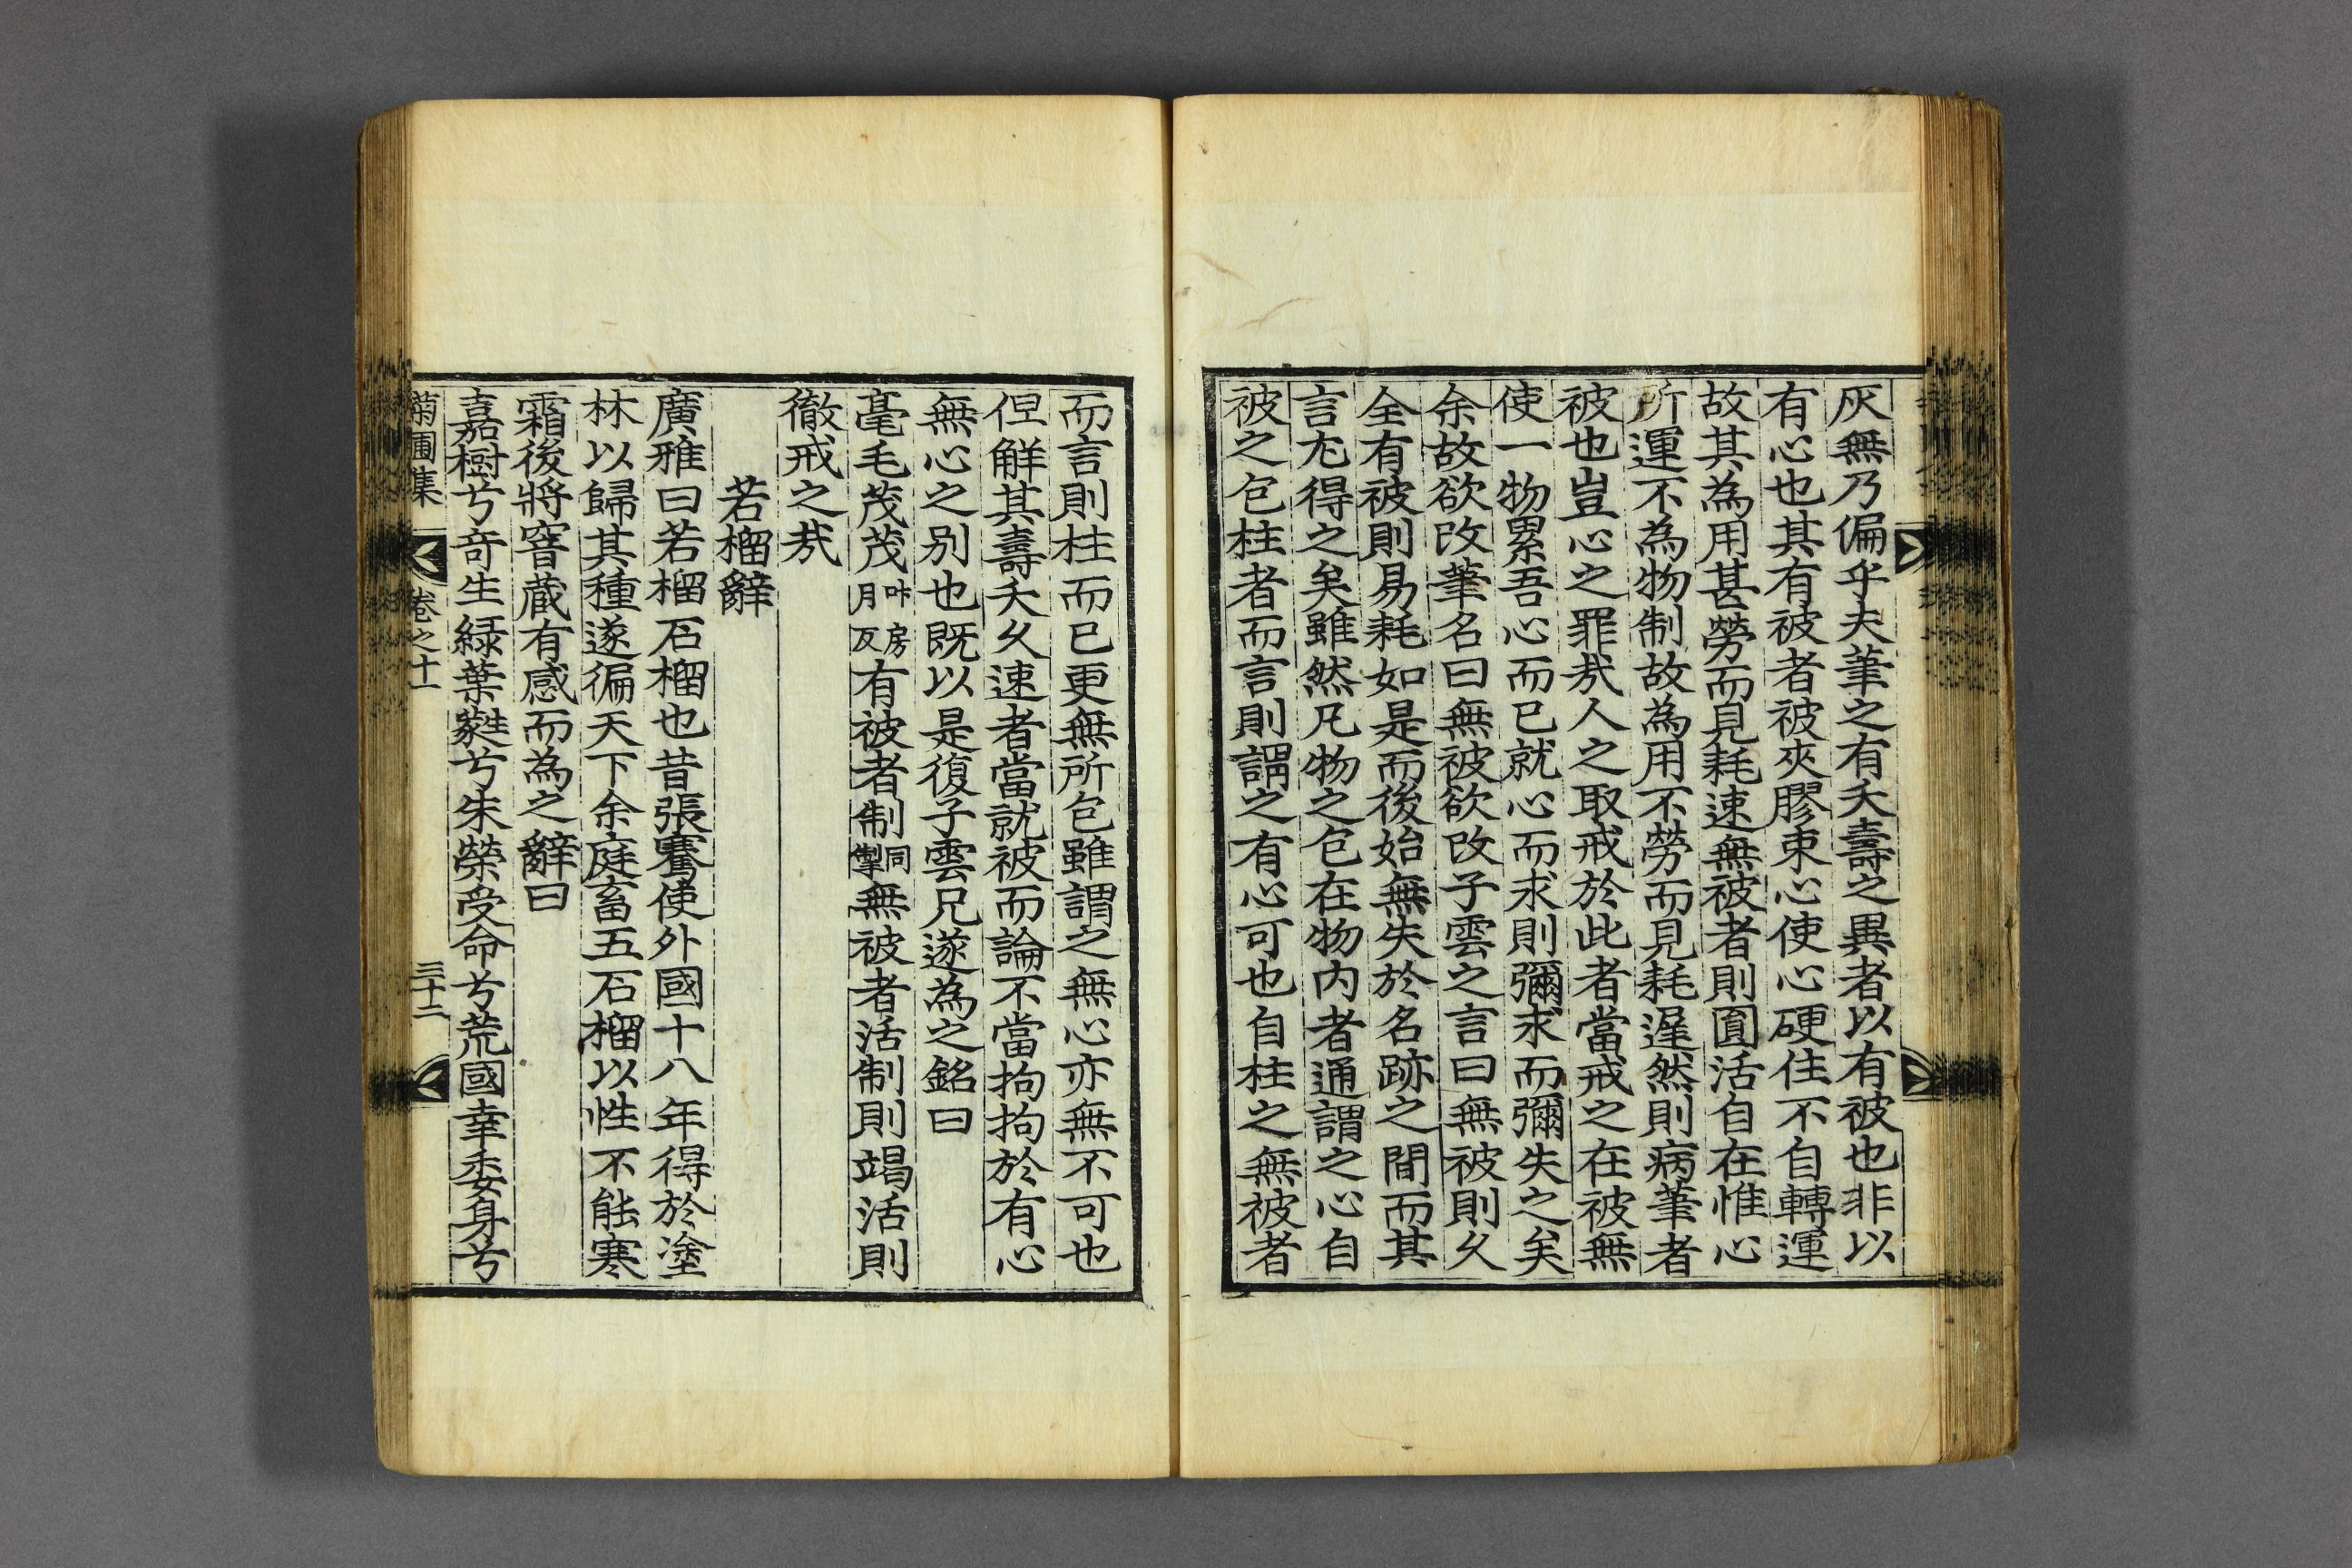 灰無乃偏乎夫筆之有夭壽之異者以有被也非以
有心也其有被者被夾膠束心使心硬住不自轉運
故其為用甚勞而見耗速無被者則圓活自在惟心
所運不為物制故為用不勞而見耗遲然則病筆者
被也豈心之罪㢤人之取戒於此者當戒之在被無
使一物累吾心而已就心而求則彌求而彌失之矣
余故欲改筆名曰無被欲改子雲之言曰無被則久
全有被則易耗如是而後始無失於名跡之間而其
言尤得之矣雖然凡物之包在物內者通謂之心自
被之包柱者而言則謂之有心可也自柱之無被者
而言則柱而已更無所包雖謂之無心亦無不可也
但觧其壽夭久速者當就被而論不當拘拘於有心
無心之别也既以是復子雲兄遂為之銘曰
毫毛茂茂咔房月反有被者制同掣無被者活制則竭活則
徹戒之㢤
若榴辭
廣雅曰若榴石榴也昔張騫使外國十八年得於塗
林以歸其種遂徧天下余庭畜五石榴以性不能寒
霜後將窨蔵有感而為之辭曰
嘉樹兮竒生緑葉蘂兮朱榮受命兮荒國幸委身兮
菊圃集 卷之十一 三十二